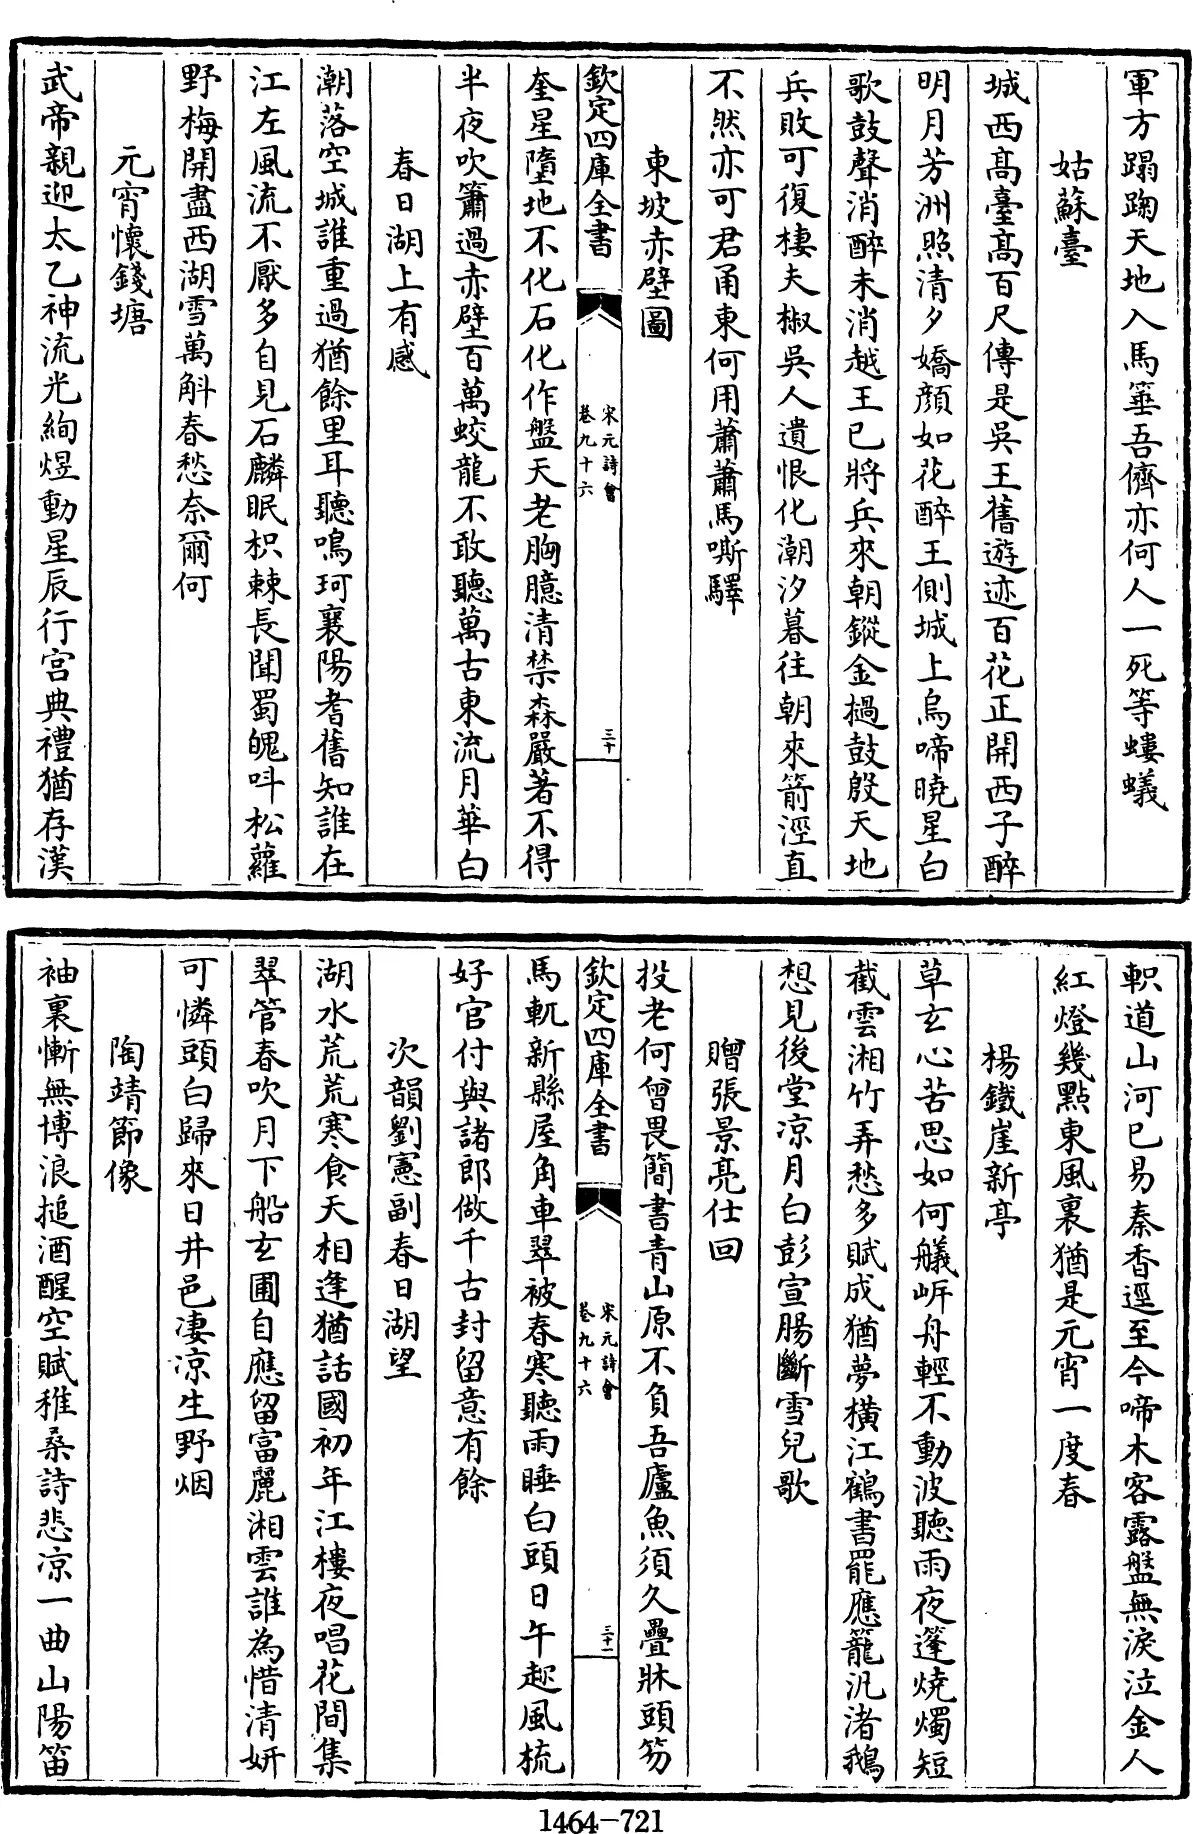 軍方蹋踘天地入馬箠吾儕亦何人一死等螻蟻
姑蘇臺
城西髙臺髙百尺傳是吳王舊遊迹百花正開西子醉
明月芳洲照清夕嬌顔如花醉王側城上烏啼曉星白
歌鼓聲消醉未消越王已將兵來朝鏦金撾鼓殷天地
兵敗可復棲夫椒吳人遺恨化潮汐暮往朝來箭涇直
不然亦可君甬東何用蕭蕭馬嘶驛
東坡赤壁圖
欽定四庫全書
宋元詩會
卷九十六
三十
奎星墮地不化石化作盤天老胸臆清禁森嚴著不得
半夜吹簫過赤壁百萬蛟龍不敢聽萬古東流月華白
春日湖上有感
潮落空城誰重過猶餘里耳聽鳴珂襄陽耆舊知誰在
江左風流不厭多自見石麟眠枳棘長聞蜀魄呌松蘿
野梅開盡西湖雪萬斛春愁奈爾何
元宵懷錢塘
武帝親迎太乙神流光絢煜動星辰行宫典禮猶存漢
軹道山河已易秦香逕至今啼木客露盤無淚泣金人
紅燈幾點東風裏猶是元宵一度春
楊鐵崖新亭
草玄心苦思如何艤岍舟輕不動波聽雨夜篷燒燭短
截雲湘竹弄愁多賦成猶夢横江鶴書罷應籠汎渚鵝
想見後堂凉月白彭宣腸斷雪兒歌
贈張景亮仕回
投老何曽畏簡書青山原不負吾廬魚須久疊牀頭笏
欽定四庫全書
宋元詩會
卷九十六
三十一
馬軏新縣屋角車翠被春寒聽雨睡白頭日午趂風梳
好官付與諸郎做千古封留意有餘
次韻劉憲副春日湖望
湖水荒荒寒食天相逢猶話國初年江樓夜唱花間集
翠管春吹月下船玄圃自應留富麗湘雲誰為惜清妍
可憐頭白歸來日井邑凄凉生野烟
陶靖節像
袖裏慚無博浪搥酒醒空賦稚桑詩悲凉一曲山陽笛
1464-721